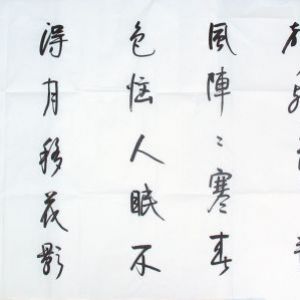 風陣〻寒春
色惱人眠不
得月移花影